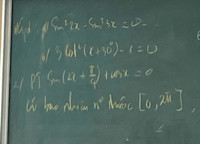 sin²2x - sin²3x = 0
b/ 3 cot²(x+30°) - 1 = 0
2/ Pt sin(2x + π/4) + cosx = 0
Có bao nhiêu n⁰ thuộc [0, 2π]